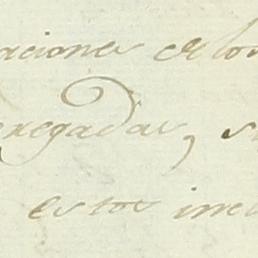 aciones de los
exegadas, s
estos irre